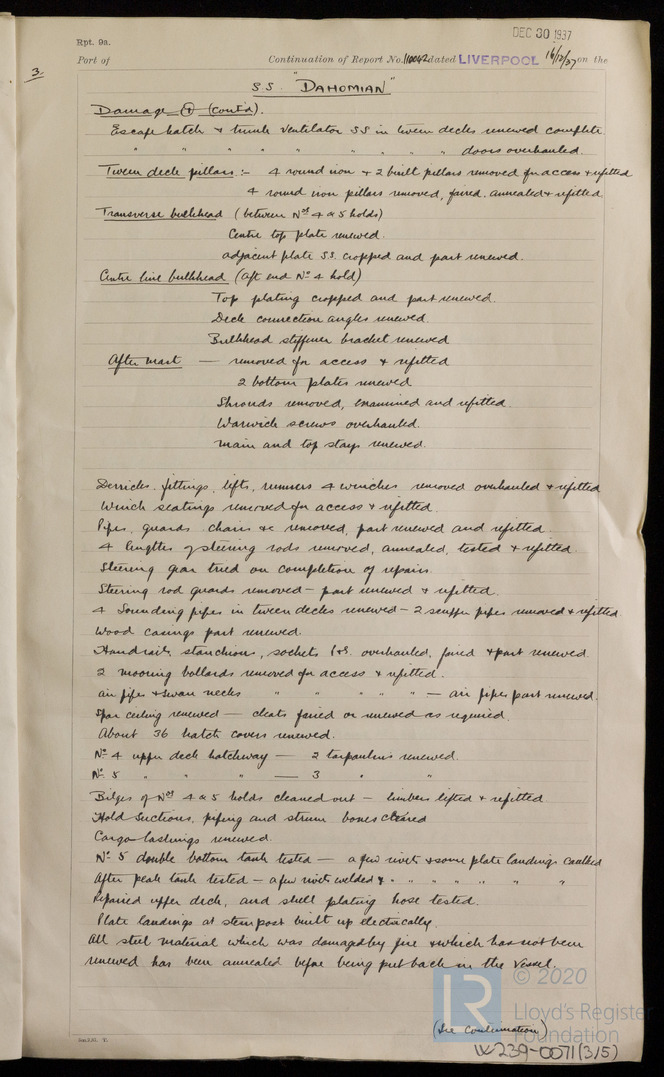 DEC 30 1937
Rpt. 9a.
Port of Continuation of Report No. dated LIVERPOOL 16/12/37 on the
3.
S.S. "DAHOMIAN"
Damage (cont'd).
Escape hatch & trunk ventilator SS in tween decks renewed complete
" " " " " " " " " doors overhauled.
Tween deck pillars :- 4 round iron & 2 built pillars removed for access & refitted
4 round iron pillars removed, faired, annealed & refitted
Transverse bulkhead (between Nos 4 & 5 holds)
Centre top plate renewed.
adjacent plate S.S. cropped and part renewed.
Centre line bulkhead (aft end No 4 hold)
Top plating cropped and part renewed.
Deck connection angles renewed.
Bulkhead stiffener bracket renewed
After mast — removed for access & refitted
2 bottom plates renewed
Shrouds removed, examined and refitted.
Warwick screws overhauled.
main and top stays renewed.
Derricks, fittings, lifts, runners 4 winches removed overhauled & refitted
Winch seatings removed for access & refitted.
Pipes, guards chains &c removed, part renewed and refitted.
4 lengths of steering rods removed, annealed, tested & refitted.
Steering gear tried on completion of repairs.
Steering rod guards removed – part renewed & refitted.
4 Sounding pipes in tween decks renewed – 2 scupper pipes removed & refitted.
Wood casings part renewed.
Handrails, stanchions, sockets &c. overhauled, faired & part renewed.
2 mooring bollards removed for access & refitted.
air pipes & swan necks " " " " " — air pipes part renewed.
Spar ceiling renewed — cleats faired or renewed as required.
About 36 hatch covers renewed.
No 4 upper deck hatchway — 2 tarpaulins renewed.
No 5 " " " — 3 " "
Bilges of Nos 4 & 5 holds cleaned out – limbers lifted & refitted.
Hold suctions, piping and strum boxes cleared
Cargo lashings renewed.
No 5 double bottom tank tested – a few rivets & some plate landings caulked
After peak tank tested – a few rivets welded & " " " " " "
Repaired upper deck, and shell plating hose tested.
Plate landings at stern post built up electrically.
All steel material which was damaged by fire & which has not been
renewed has been annealed before being put back in the vessel.
(See Continuation)
© 2020
LR
Lloyd's Register
Foundation
W239-0071(3/5)